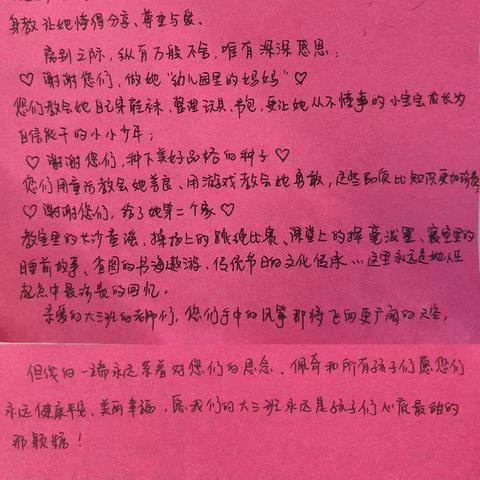 身教让她懂得分享、尊重与爱。
离别之际，纵有万般不舍，唯有深深感恩：
♡ 谢谢您们，做她“幼儿园里的妈妈” ♡
您们教会她自己穿鞋袜、整理玩具、书包，更让她从不懂事的小宝宝成长为
自信能干的小小少年；
♡ 谢谢您们，种下美好品格的种子 ♡
您们用童话教会她善良、用游戏教会她勇敢，这些品质比知识更加珍贵
♡ 谢谢您们，给了她第二个家 ♡
教室里的长沙童谣、操场上的跳绳比赛、课堂上的挥毫泼墨、寝室里的
睡前故事、省图的书海遨游、传统节日的文化传承…这里永远是她人生
起点中最珍贵的回忆。
亲爱的大三班的老师们，您们手中的风筝即将飞向更广阔的天空，
但线的一端永远系着对您们的思念、佩奇和所有孩子们愿您们
永远健康平安、美丽幸福，愿我们的大三班永远是孩子们心底最甜的
那颗糖！